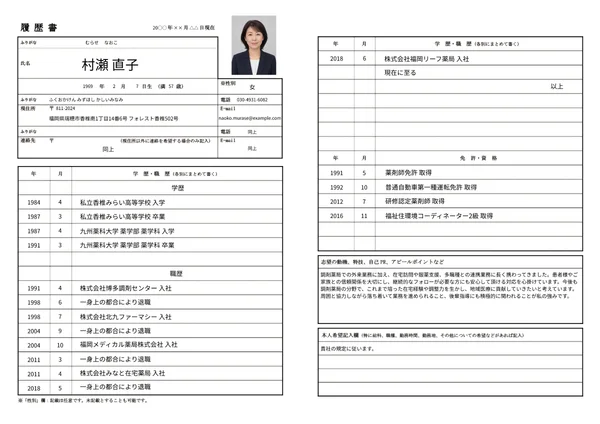 履 歴 書
20○○ 年 ×× 月 △△ 日現在
ふりがな
むらせ　なおこ
氏名
村瀬 直子
1969　年　2　月　7 日生　（満 57 歳）
※性別
女
ふりがな
ふくおかけん みずほし かしいみなみ
電話
050-4931-6082
現住所
〒 811-2024
福岡県瑞穂市香椎南1丁目14番6号 フォレスト香椎502号
E-mail
naoko.murase@example.com
ふりがな
電話
同上
連絡先
〒
（現住所以外に連絡を希望する場合のみ記入）
同上
E-mail
同上
年　月　学 歴・職 歴（各別にまとめて書く）
学歴
1984　4　私立香椎みらい高等学校 入学
1987　3　私立香椎みらい高等学校 卒業
1987　4　九州薬科大学 薬学部 薬学科 入学
1991　3　九州薬科大学 薬学部 薬学科 卒業
職歴
1991　4　株式会社博多調剤センター 入社
1998　6　一身上の都合により退職
1998　7　株式会社北九ファーマシー 入社
2004　9　一身上の都合により退職
2004　10　福岡メディカル薬局株式会社 入社
2011　3　一身上の都合により退職
2011　4　株式会社みなと在宅薬局 入社
2018　5　一身上の都合により退職
※「性別」欄：記載は任意です。未記載とすることも可能です。
年　月　学 歴・職 歴（各別にまとめて書く）
2018　6　株式会社福岡リーフ薬局 入社
現在に至る
以上
年　月　免 許・資 格
1991　5　薬剤師免許 取得
1992　10　普通自動車第一種運転免許 取得
2012　7　研修認定薬剤師 取得
2016　11　福祉住環境コーディネーター2級 取得
志望の動機、特技、自己PR、アピールポイントなど
調剤薬局での外来業務に加え、在宅訪問や服薬支援、多職種との連携業務に長く携わってきました。患者様やご
家族との信頼関係を大切にし、継続的なフォローが必要な方にも安心して頂ける対応を心掛けています。今後も
調剤薬局の分野で、これまで培った在宅経験や調整力を生かし、地域医療に貢献していきたいと考えています。
周囲と協力しながら落ち着いて業務を進められること、後輩指導にも積極的に関われることが私の強みです。
本人希望記入欄（特に給料、職種、勤務時間、勤務地、その他についての希望などがあれば記入）
貴社の規定に従います。